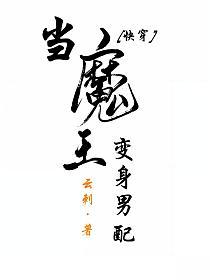 当魔王
变身男配
（快穿）
云刺·著